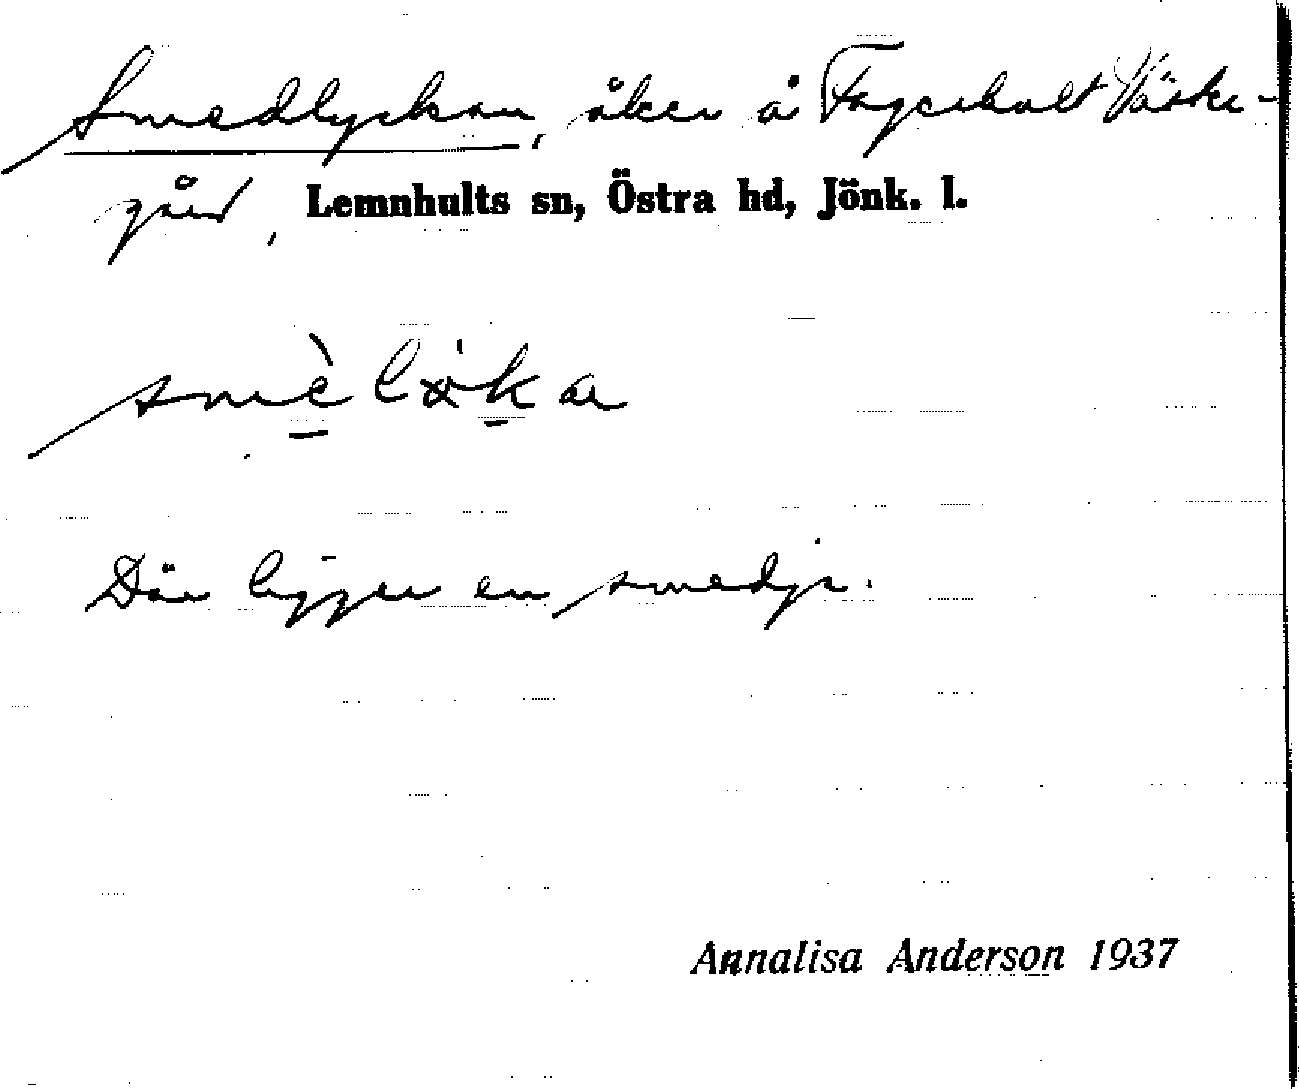 Smedlyckan, åker å Fagerhult Väster-
gård, Lemnhults sn, Östra hd, Jönk. l.
Där ligger en smedja.
Annalisa Anderson 1937